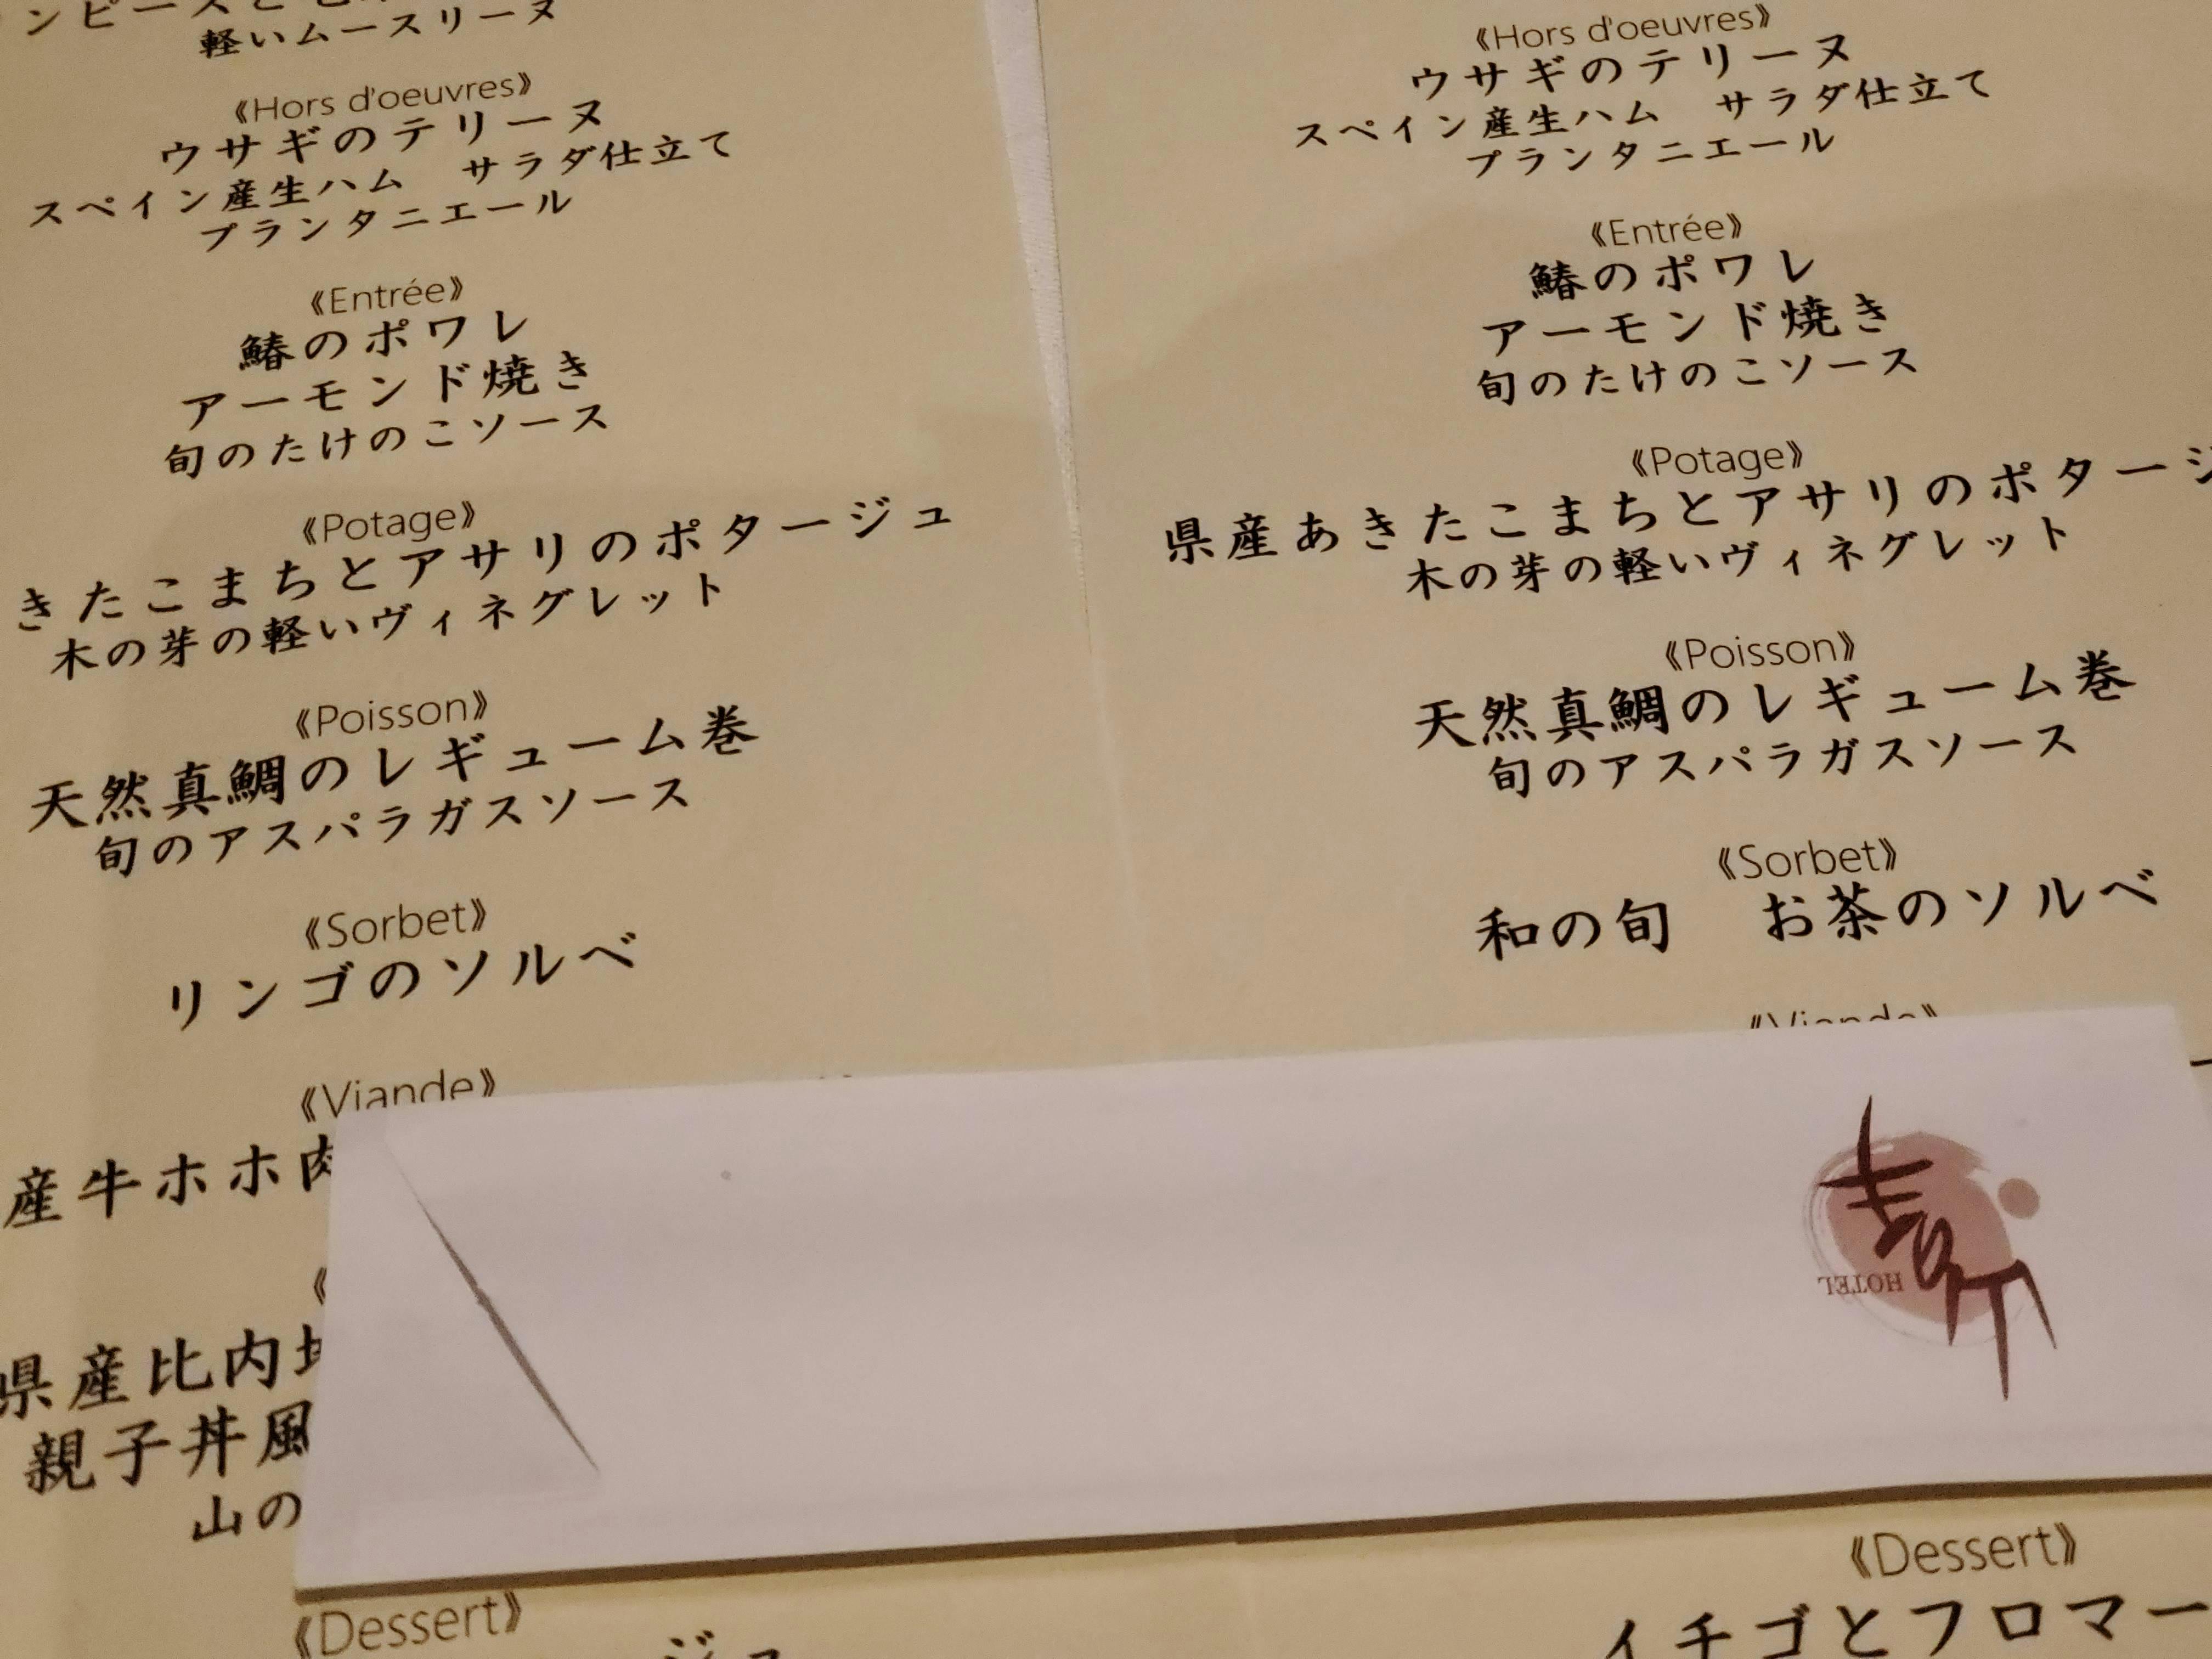 軽いムースリーヌ
《Hors d'oeuvres》
ウサギのテリーヌ
スペイン産生ハム　サラダ仕立て
プランタニエール
《Entrée》
鰆のポワレ
アーモンド焼き
旬のたけのこソース
《Potage》
きたこまちとアサリのポタージュ
木の芽の軽いヴィネグレット
《Poisson》
天然真鯛のレギューム巻
旬のアスパラガスソース
《Sorbet》
リンゴのソルベ
《Viande》
産牛ホホ肉
県産比内
親子丼風
山の
《Dessert》
ジュ
《Hors d'oeuvres》
ウサギのテリーヌ
スペイン産生ハム　サラダ仕立て
プランタニエール
《Entrée》
鰆のポワレ
アーモンド焼き
旬のたけのこソース
《Potage》
県産あきたこまちとアサリのポタージ
木の芽の軽いヴィネグレット
《Poisson》
天然真鯛のレギューム巻
旬のアスパラガスソース
《Sorbet》
和の旬　お茶のソルベ
《Viande》
HOTEL
《Dessert》
イチゴとフロマー